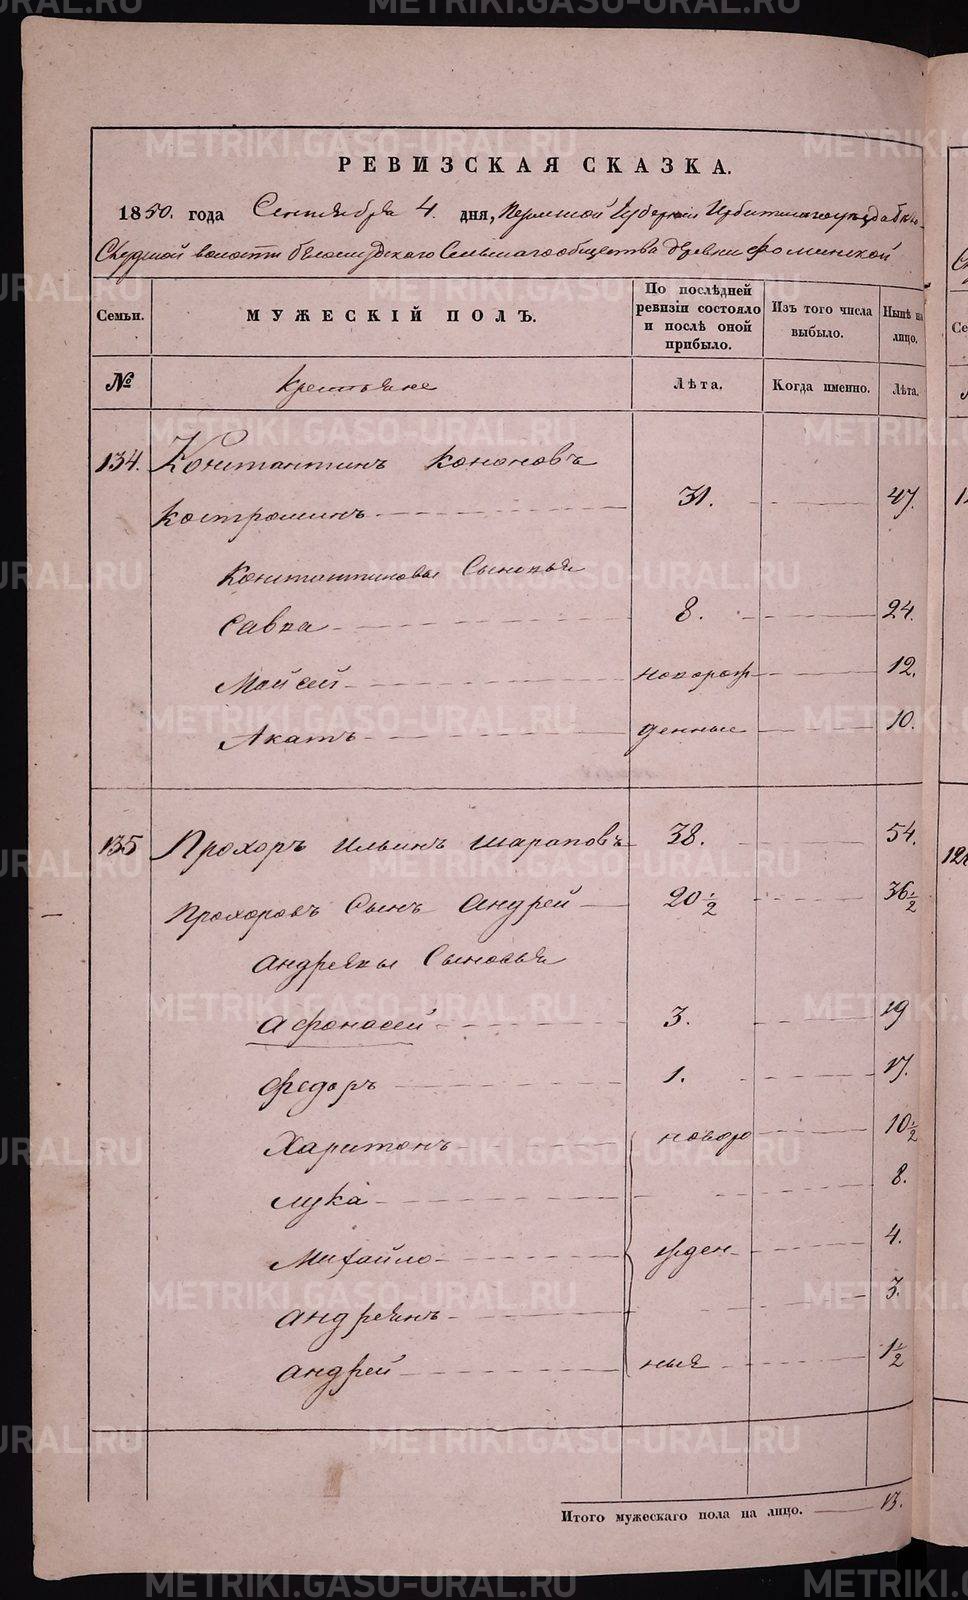 METRIKI.GASO-URAL.RU
РЕВИЗСКАЯ СКАЗКА.
1850. года Сентября 4. дня, Пермской Губернии Ирбитскаго уѣзда
волости Сельскаго общества деревни Фоминской
Семьи.
МУЖЕСКІЙ ПОЛЪ.
По послѣдней ревизіи состояло и послѣ оной прибыло.
Изъ того числа выбыло.
Нынѣ на лицо.
№ крестьяне Лѣта. Когда именно. Лѣта.
134. Константинъ Кононовъ
Костроминъ 31. 47.
Константиновы Сыновья
Савка 8. 24.
Мойсей новорож 12.
Акатъ денные 10.
135 Прохоръ Ильинъ Шараповъ 38. 54.
Прохоровъ Сынъ Андрей 20 1/2 36 1/2
Андреевы Сыновья
Афонасей 3. 19
Федоръ 1. 17.
Харитонъ новоро 10 1/2
Лука 8.
Михайло жден 4.
Андреянъ 3.
Андрей ныя 1 1/2
Итого мужескаго пола на лицо. 13.